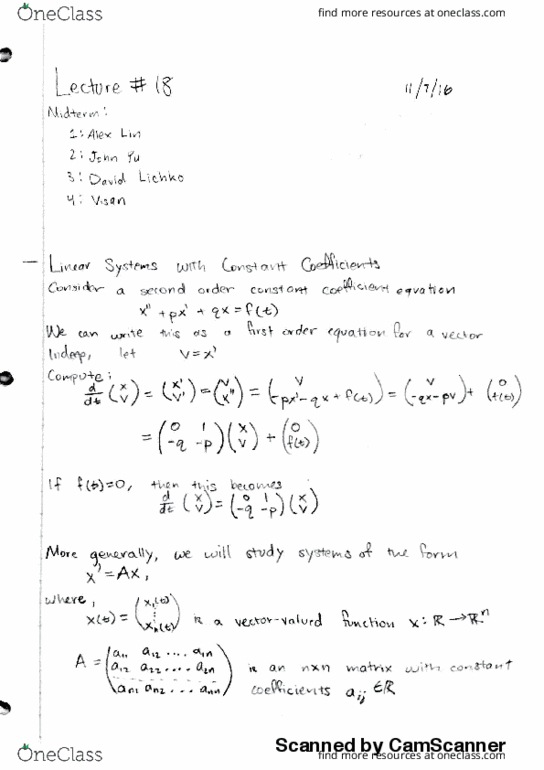 OneClass
find more resources at oneclass.com
Lecture # 18 11/7/16
Midterm:
1: Alex Lin
2: John Yu
3: David Lichko
4: Visan
— Linear Systems with Constant Coefficients
Consider a second order constant coefficient equation
x'' + px' + qx = f(t)
We can write this as a first order equation for a vector
Indeep, let v = x'
Compute:
d/dt (x v) = (x' v') = (v x'') = (v -px' - qx + f(t)) = (v -qx - pv) + (0 f(t))
= (0 1 -q -p)(x v) + (0 f(t))
If f(t)=0, then this becomes
d/dt (x v) = (0 1 -q -p)(x v)
More generally, we will study systems of the form
x' = Ax,
where,
x(t) = (x₁(t) ⋮ xₙ(t)) is a vector-valued function x: ℝ → ℝⁿ
A = (a₁₁ a₁₂ .... a₁ₙ
a₁₂ a₂₂ .... a₂ₙ
aₙ₁ aₙ₂ ... aₙₙ) is an nxn matrix with constant
coefficients aᵢⱼ ∈ ℝ
Scanned by CamScanner
OneClass
find more resources at oneclass.com